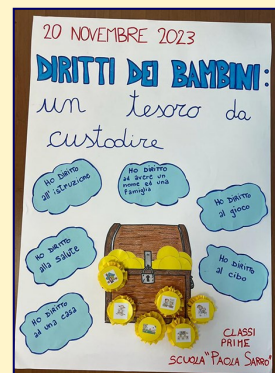 20 NOVEMBRE 2023
DIRITTI DEI BAMBINI:
un tesoro da
custodire
HO DIRITTO
all'istruzione
HO DIRITTO
ad avere un
nome ed una
famiglia
HO DIRITTO
al gioco
HO DIRITTO
alla salute
HO DIRITTO
al cibo
HO DIRITTO
ad una casa
CLASSI
PRIME
SCUOLA "PAOLA SARRO"